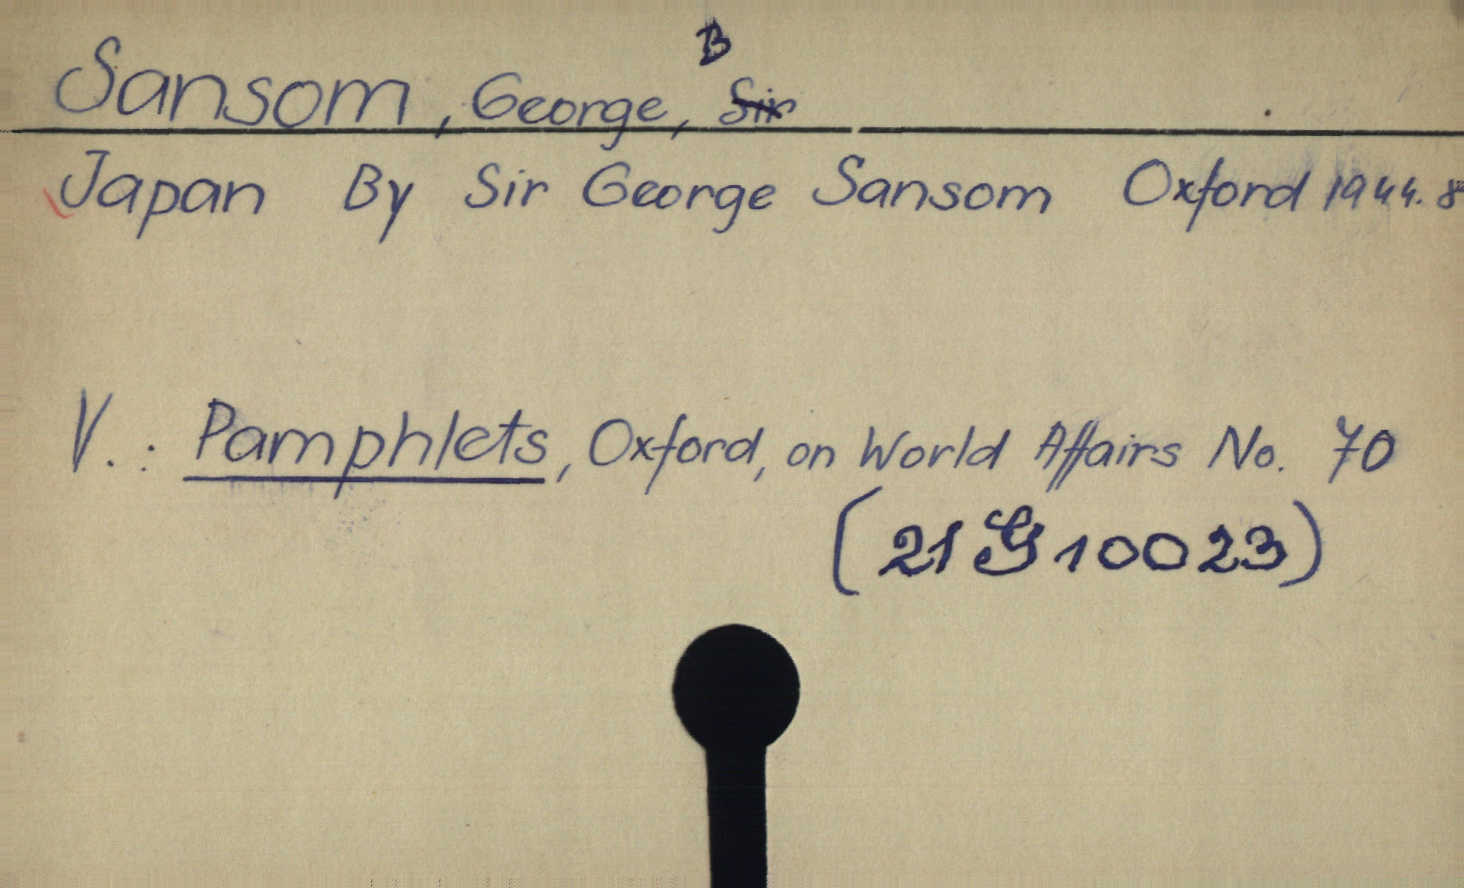 Sansom, George, B Sir
Japan By Sir George Sansom Oxford 1944. 8
V.: Pamphlets, Oxford, on World Affairs No. 70
(21 G 10023)